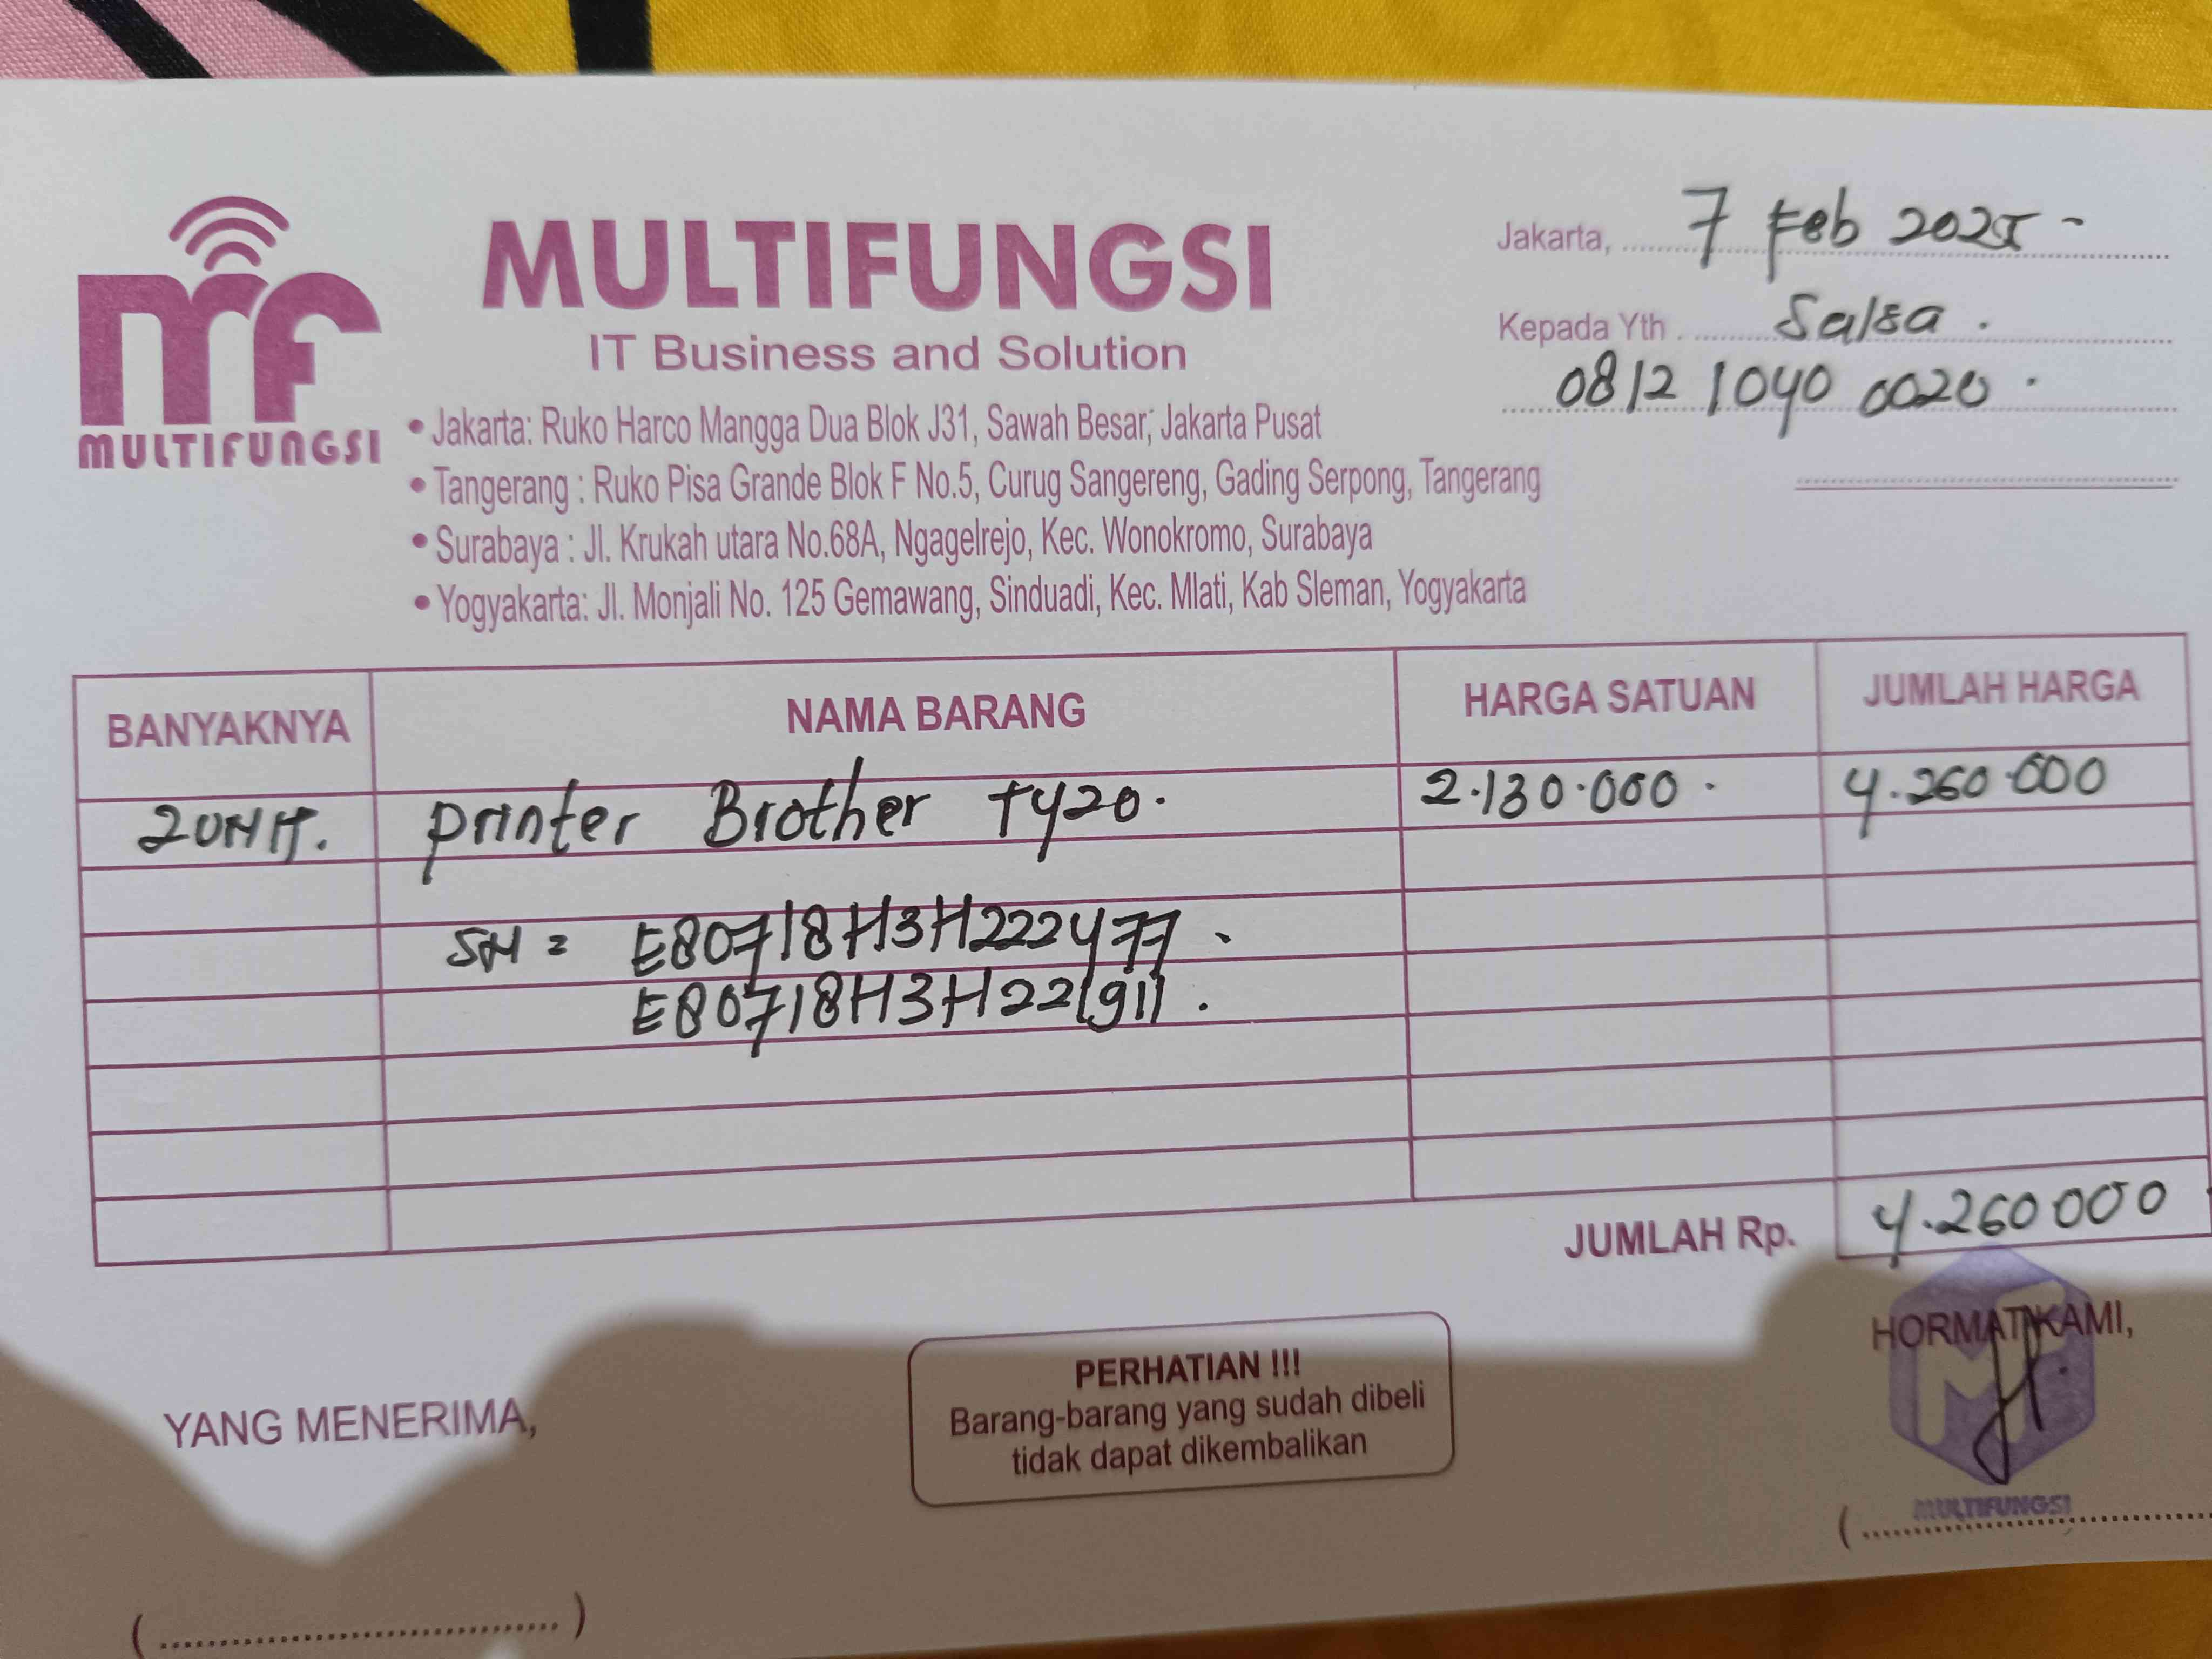 MULTIFUNGSI
MULTIFUNGSI
IT Business and Solution
• Jakarta: Ruko Harco Mangga Dua Blok J31, Sawah Besar, Jakarta Pusat
• Tangerang : Ruko Pisa Grande Blok F No.5, Curug Sangereng, Gading Serpong, Tangerang
• Surabaya : Jl. Krukah utara No.68A, Ngagelrejo, Kec. Wonokromo, Surabaya
• Yogyakarta: Jl. Monjali No. 125 Gemawang, Sinduadi, Kec. Mlati, Kab Sleman, Yogyakarta
Jakarta, 7 Feb 2025 -
Kepada Yth . Salsa .
0812 1040 0020 .
BANYAKNYA NAMA BARANG HARGA SATUAN JUMLAH HARGA
2 UNIT. printer Brother T420. 2.130.000. 4.260.000
SN = E80718H3H222477 .
E80718H3H221911 .
JUMLAH Rp. 4.260 000
HORMAT KAMI,
MULTIFUNGSI
YANG MENERIMA,
PERHATIAN !!!
Barang-barang yang sudah dibeli
tidak dapat dikembalikan